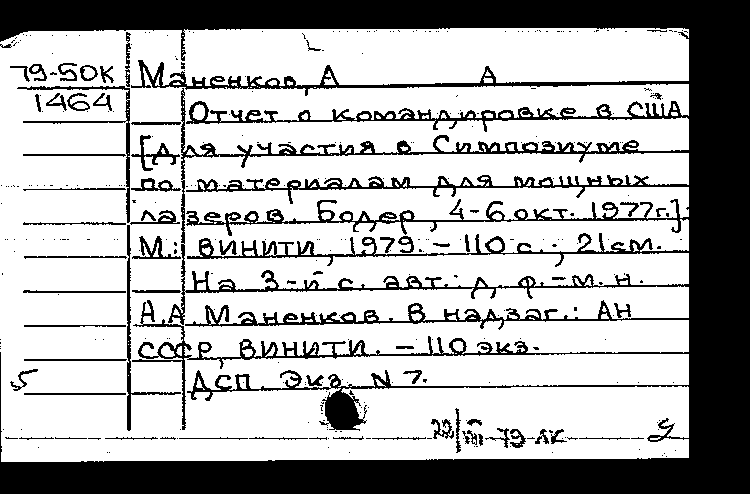 79-50К Маненков, А А
1464 Отчет о командировке в США
[для участия в Симпозиуме
по материалам для мощных
лазеров. Бодер, 4-6 окт. 1977г.].
М.: ВИНИТИ, 1979. – 110 с.; 21см.
На 3-й с. авт.: д. ф.-м. н.
А.А. Маненков. В надзаг.: АН
СССР, ВИНИТИ. – 110 экз.
5 ДСП. Экз. N 7.
22/VIII-79 ЛК